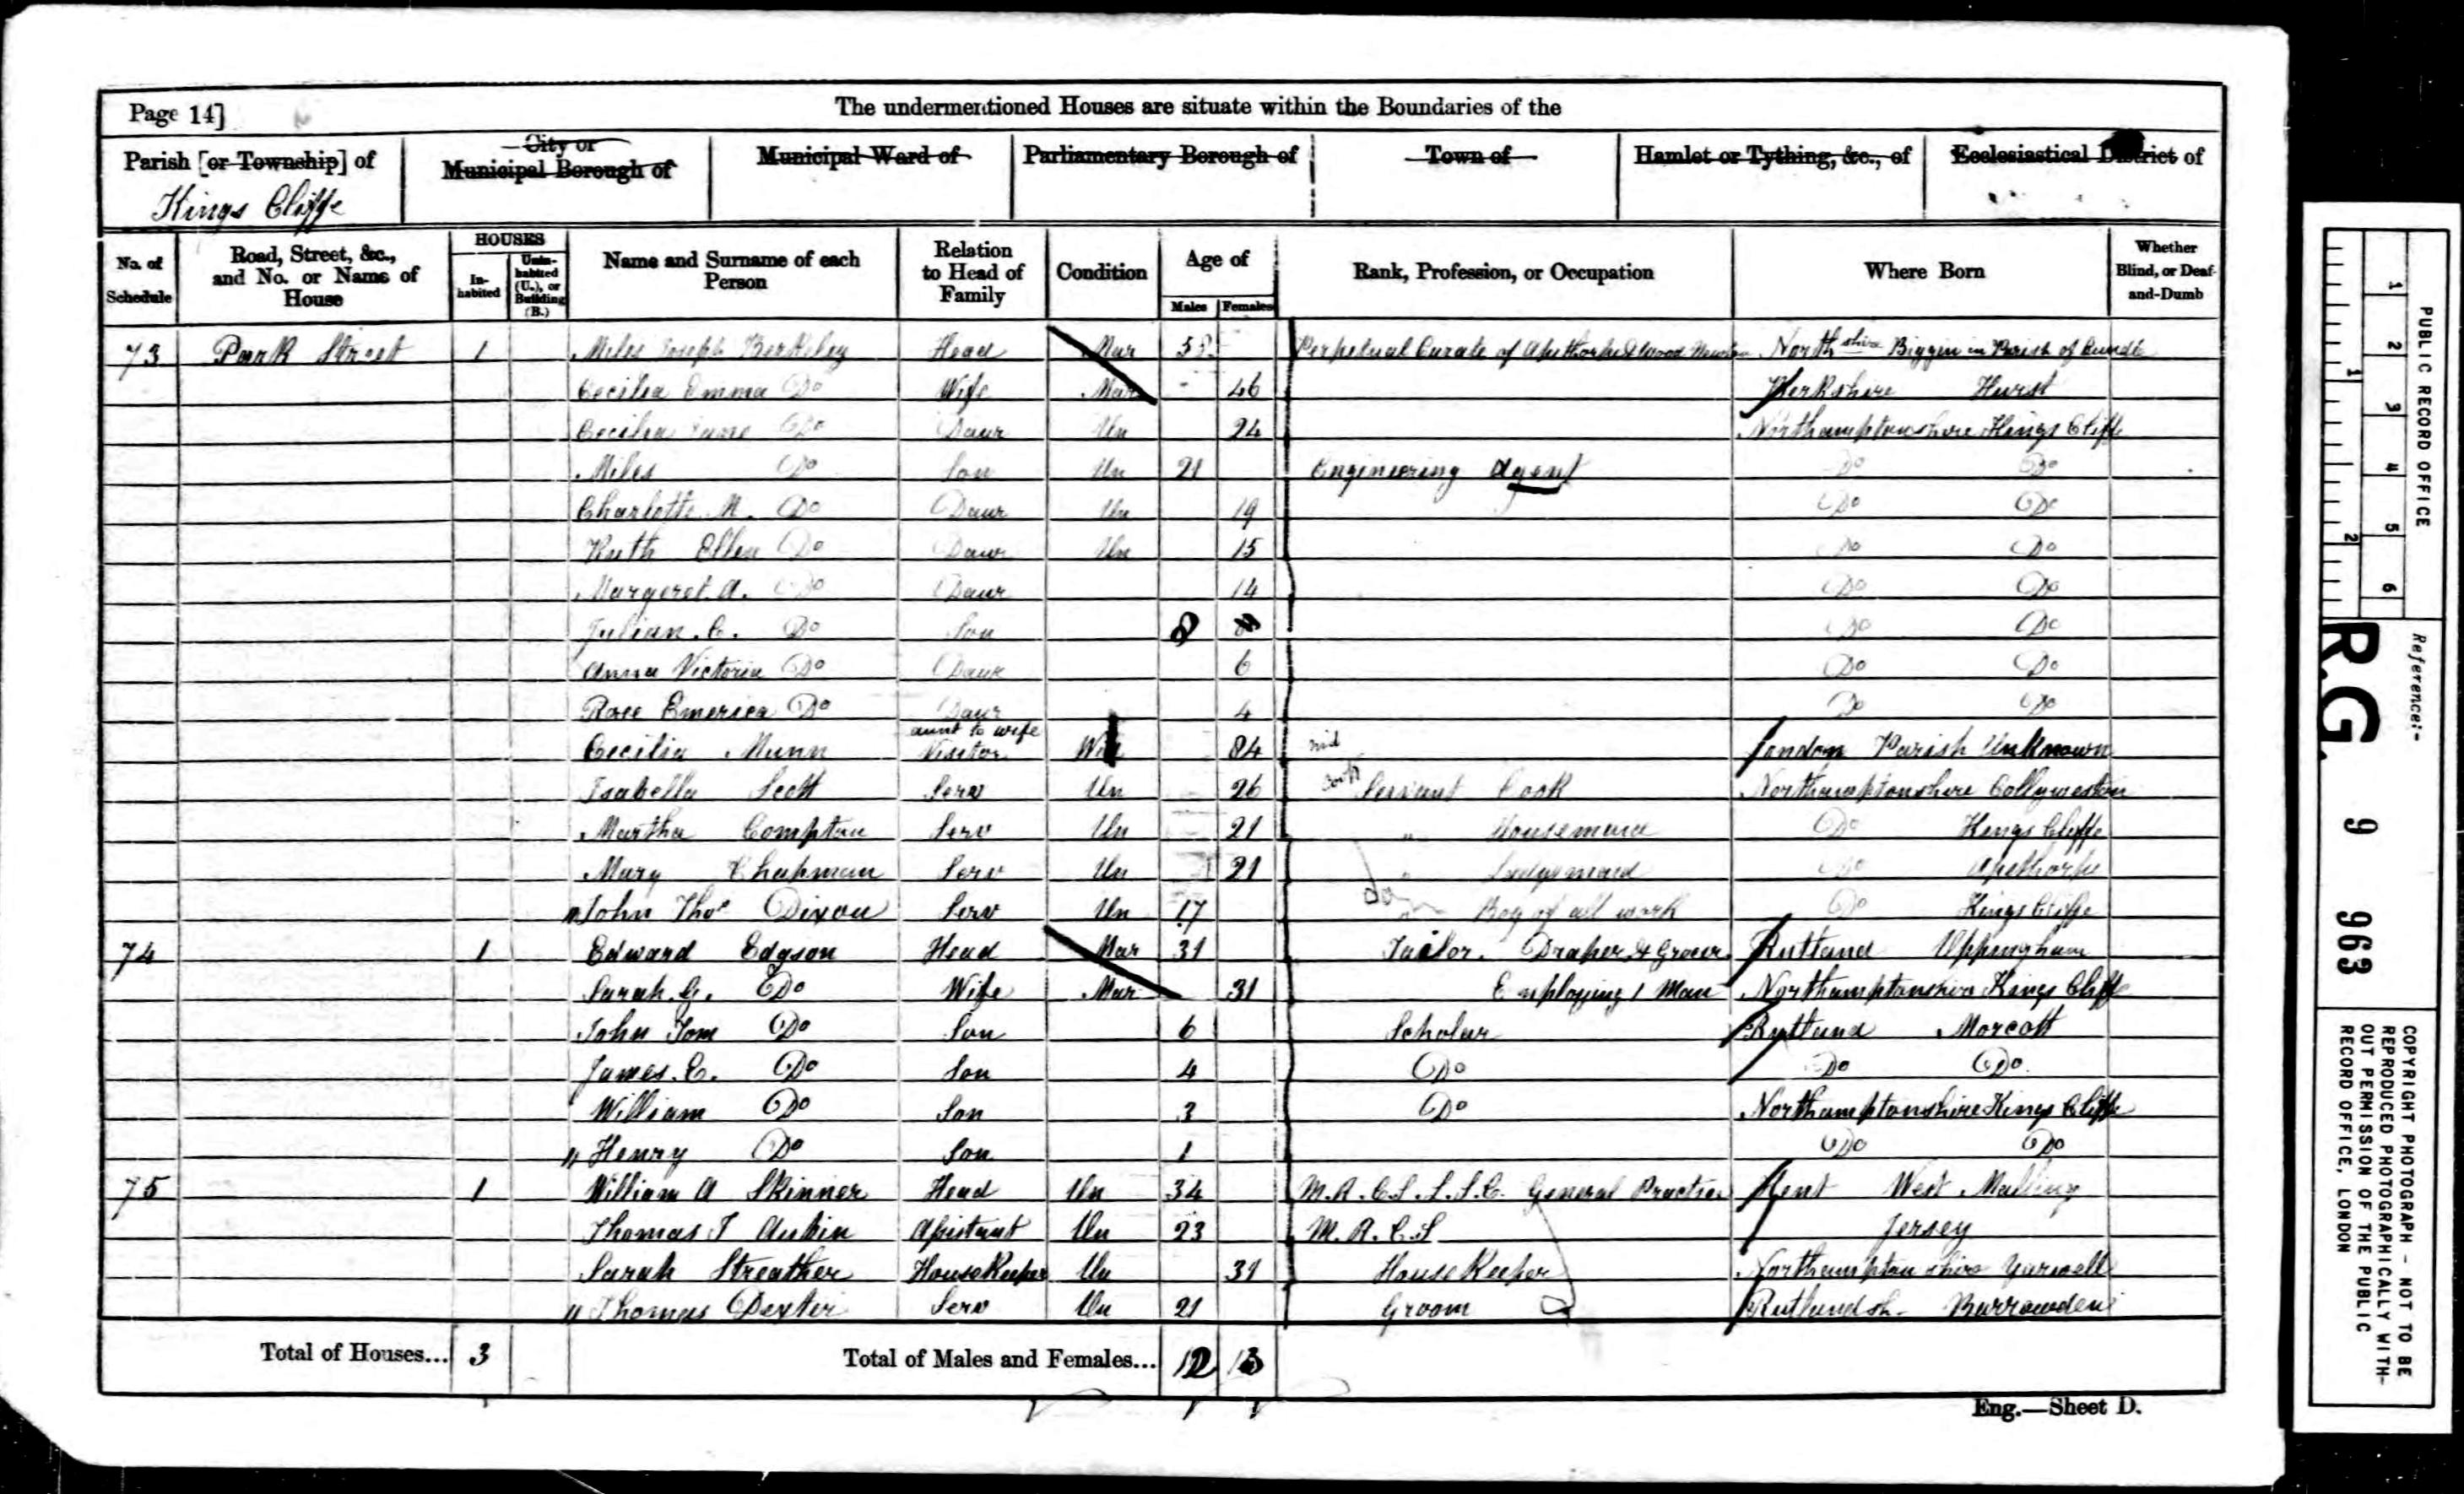 Page 14]
The undermentioned Houses are situate within the Boundaries of the
Parish [or Township] of
Kings Cliffe
City or
Municipal Borough of
Municipal Ward of
Parliamentary Borough of
Town of
Hamlet or Tything, &c., of
Ecclesiastical District of
No. of Schedule
Road, Street, &c., and No. or Name of House
HOUSES
In-habited
Unin-habited (U.), or Building (B.)
Name and Surname of each Person
Relation to Head of Family
Condition
Age of
Males
Females
Rank, Profession, or Occupation
Where Born
Whether Blind, or Deaf-and-Dumb
73 Park Street 1 Miles Joseph Berkeley Head Mar 58 Perpetual Curate of Apethorpe & Wood Newton North shire Biggin in Parish of Oundle
Cecilia Emma Do Wife Mar 46 Berkshire Hurst
Cecilia Jane Do Daur Un 24 Northamptonshire Kings Cliffe
Miles Do Son Un 21 Engineering Agent Do Do
Charlotte M. Do Daur Un 19 Do Do
Ruth Ellen Do Daur Un 15 Do Do
Margeret A. Do Daur 14 Do Do
Julian. C. Do Son 8 Do Do
Anna Victoria Do Daur 6 Do Do
Rose Emerica Do Daur 4 Do Do
Cecilia Munn aunt to wife Visitor 84 London Parish Unknown
Isabella Scott Serv Un 26 Servant Cook Northamptonshire Collyweston
Martha Compton Serv Un 21 " Housemaid Do Kings Cliffe
Mary Chapman Serv Un 21 " Do Apethorpe
John Thos Dixon Serv Un 17 " Boy of all work Do Kings Cliffe
74 1 Edward Edgson Head Mar 31 Tailor. Draper & Grocer Rutland Uppingham
Sarah. G. Do Wife Mar 31 Employing 1 Man Northamptonshire Kings Cliffe
John Tom Do Son 6 Scholar Rutland Morcott
James. C. Do Son 4 Do Do Do
William Do Son 3 Do Northamptonshire Kings Cliffe
Henry Do Son 1 Do Do
75 1 William A Skinner Head Un 34 M.R.C.S. L.S.C. General Practice Kent West Malling
Thomas J Aubin Assistant Un 23 M.R.C.S Jersey
Sarah Streather HouseKeeper Un 31 HouseKeeper Northamptonshire Yarwell
Thomas Dexter Serv Un 21 Groom Rutlandsh. Barrowden
Total of Houses... 3
Total of Males and Females... 12 13
Eng.—Sheet D.
PUBLIC RECORD OFFICE
1 2 3 4 5 6
1 2
Reference:-
R.G. 9 963
COPYRIGHT PHOTOGRAPH - NOT TO BE
REPRODUCED PHOTOGRAPHICALLY WITH-
OUT PERMISSION OF THE PUBLIC
RECORD OFFICE, LONDON